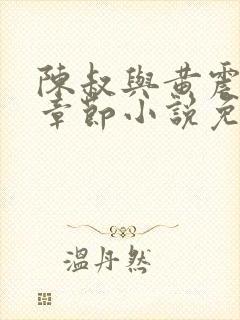 陳叔與黃震
章節小說免
溫丹然